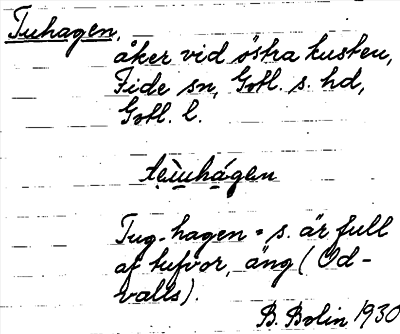 Tuhagen,
åker vid östra kusten,
Fide sn, Gotl. s. hd,
Gotl. l.
teùuhágen
Tug-hagen = s. är full
af tufvor, äng (Od-
valls).
B. Bolin 1930